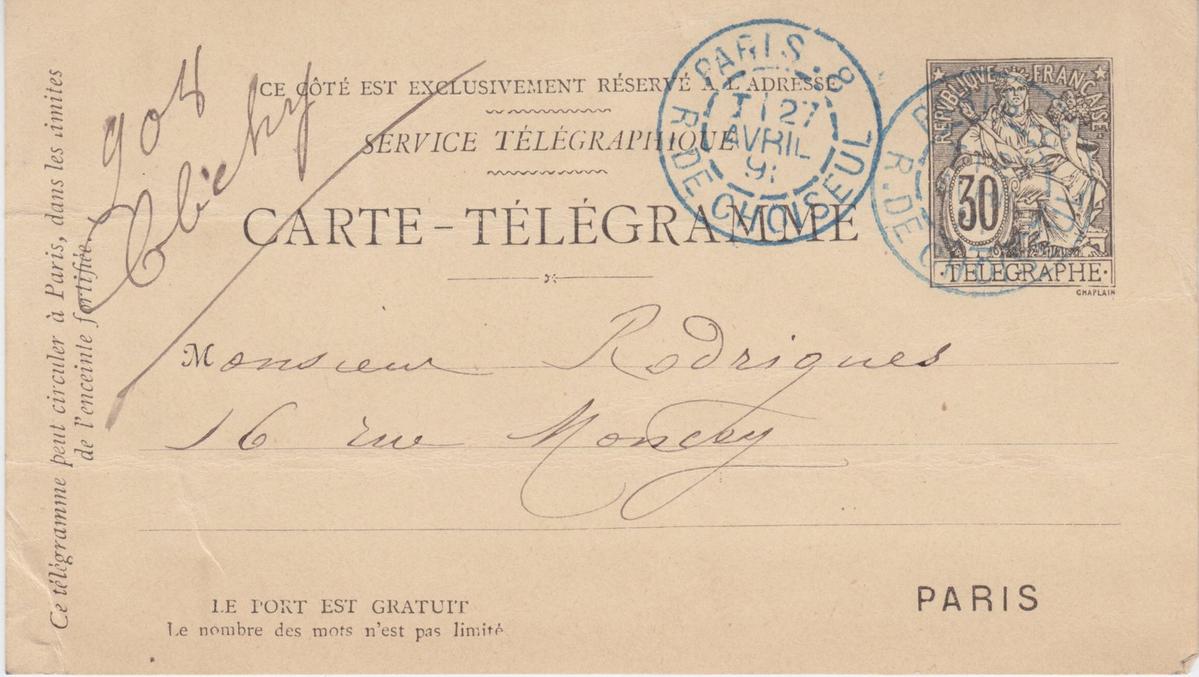 CE CÔTÉ EST EXCLUSIVEMENT RÉSERVÉ A L'ADRESSE
SERVICE TÉLÉGRAPHIQUE
CARTE-TÉLÉGRAMME
PARIS.8
27
AVRIL
R. DE CHOISEUL
RÉPUBLIQUE FRANCAISE
30
·TÉLÉGRAPHE·
CHAPLAIN
R. DE CHOISEUL
Clichy
Monsieur Rodrigues
16 rue Moncey
PARIS
LE PORT EST GRATUIT
Le nombre des mots n'est pas limité
Ce télégramme peut circuler à Paris, dans les limites
de l'enceinte fortifiée.